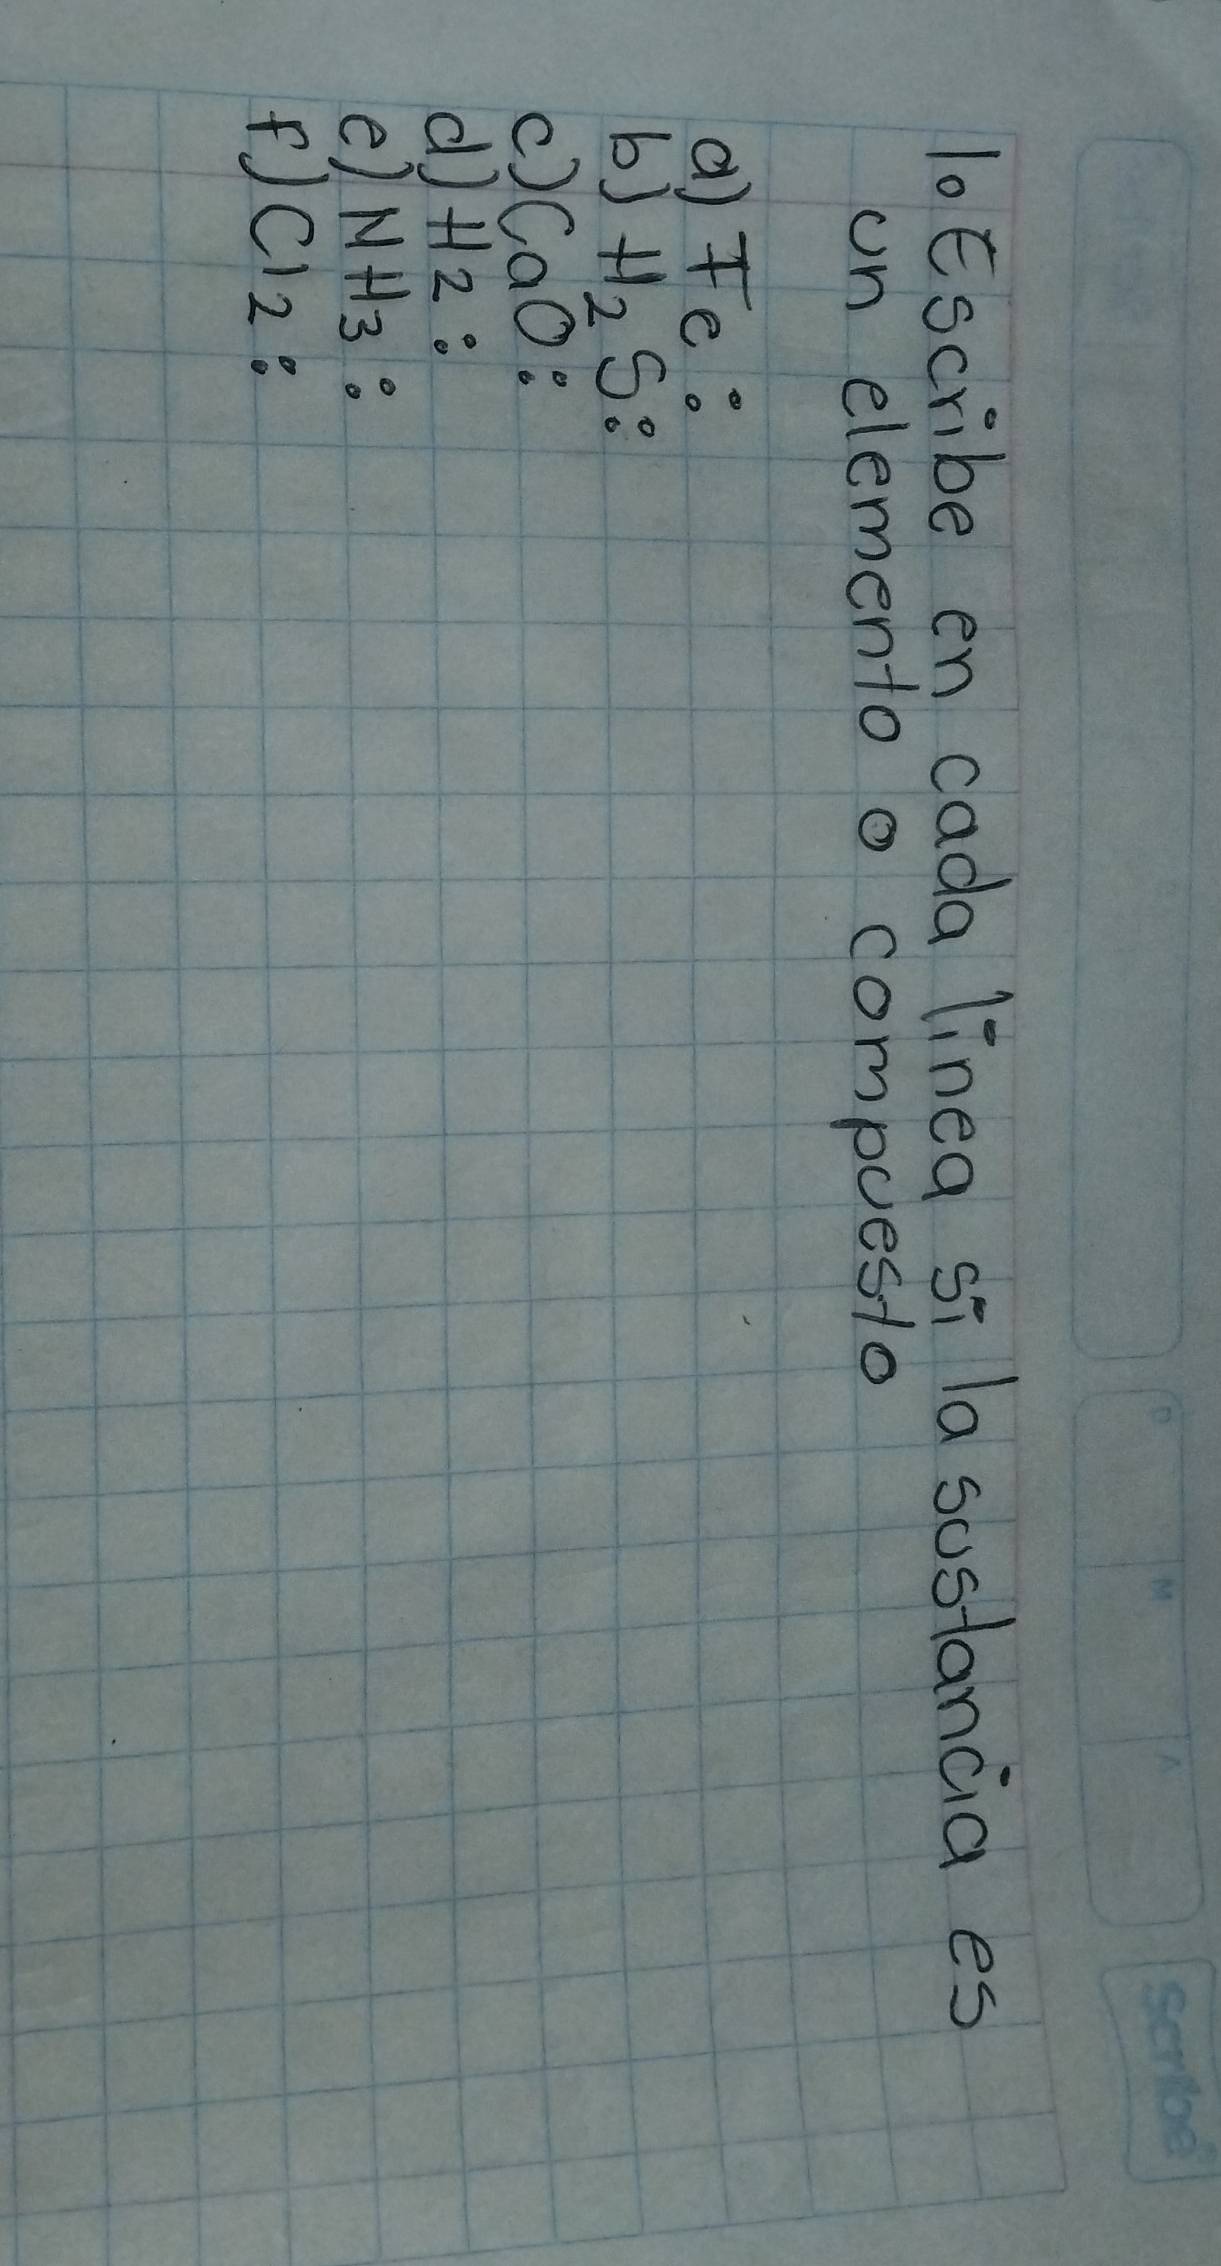 Scribe
D M A
1. Escribe en cada línea si la sustancia es
un elemento o compuesto
a) Fe:
b) H₂S:
c) CaO:
d) H2:
e) NH3:
f) Cl2: